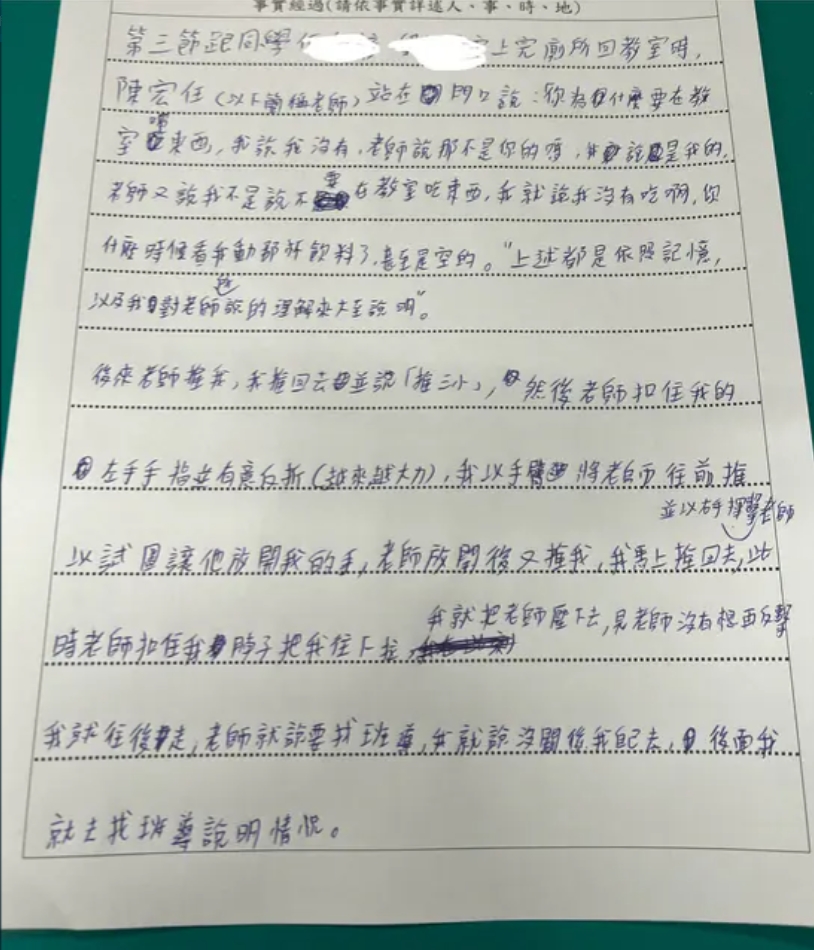 事實經過(請依事實詳述人、事、時、地)
第三節跟同學 上完廁所回教室時,
陳宏任(以下簡稱老師)站在門口說:你為什麼要在教
室喝東西,我說我沒有,老師說那不是你的嗎,我說是我的,
老師又說我不是說不要在教室吃東西,我就說我沒有吃啊,你
什麼時候看我動那杯飲料了,甚至是空的。"上述都是依照記憶,
以及我對老師說的理解來大至說明"。
後來老師推我,我推回去並說「推三小」,然後老師扣住我的
左手手指並有意反折(越來越大力),我以手臂將老師往前推
並以右手揮擊老師
以試圖讓他放開我的手,老師放開後又推我,我馬上推回去,此
我就把老師壓下去,見老師沒有想再反擊
時老師扣住我脖子把我往下拉,
我就往後走,老師就說要找班導,我就說沒關係我自己去,後面我
就去找班導說明情況。